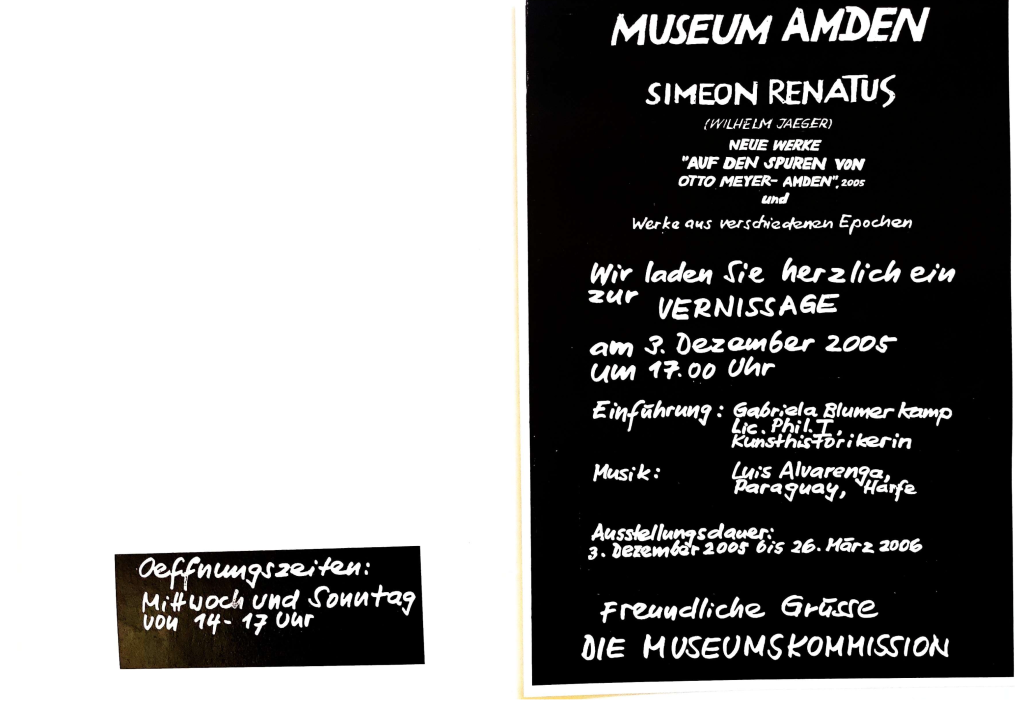 Oeffnungszeiten:
Mittwoch und Sonntag
von 14 - 17 Uhr
MUSEUM AMDEN
SIMEON RENATUS
(WILHELM JAEGER)
NEUE WERKE
"AUF DEN SPUREN VON
OTTO MEYER- AMDEN", 2005
und
Werke aus verschiedenen Epochen
Wir laden Sie herzlich ein
zur VERNISSAGE
am 3. Dezember 2005
um 17.00 Uhr
Einführung: Gabriela Blumer Kamp
Lic. Phil. I,
Kunsthistorikerin
Musik: Luis Alvarenga,
Paraguay, Harfe
Ausstellungsdauer:
3. Dezember 2005 bis 26. März 2006
Freundliche Grüsse
DIE MUSEUMSKOMMISSION